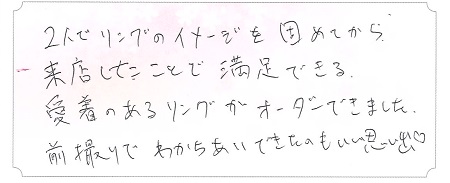 2人でリングのイメージを固めてから
来店したことで満足できる.
愛着のあるリングがオーダーできました.
前撮りでわかちあいできたのもいい思い出♡